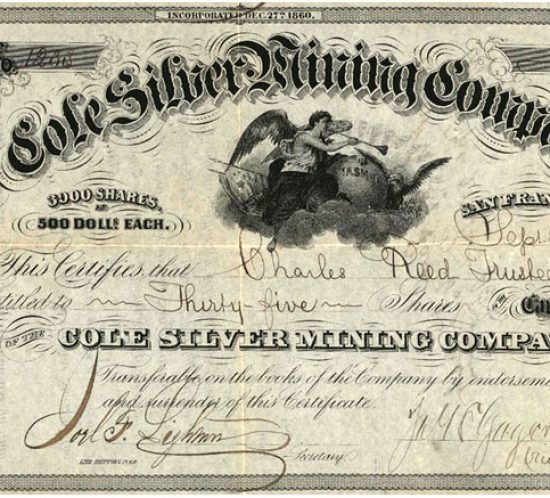 INCORPORATED DEC. 27TH 1860.
Cole Silver Mining Compa
3000 SHARES,
OF
500 DOLLS EACH.
SAN FRAN
Sept
This Certifies, that Charles Reed Trustee
titled to Thirty-five Shares
OF THE COLE SILVER MINING COMPA
Transferable on the books of the Company by endorseme
and surrender of this Certificate.
Secretary.